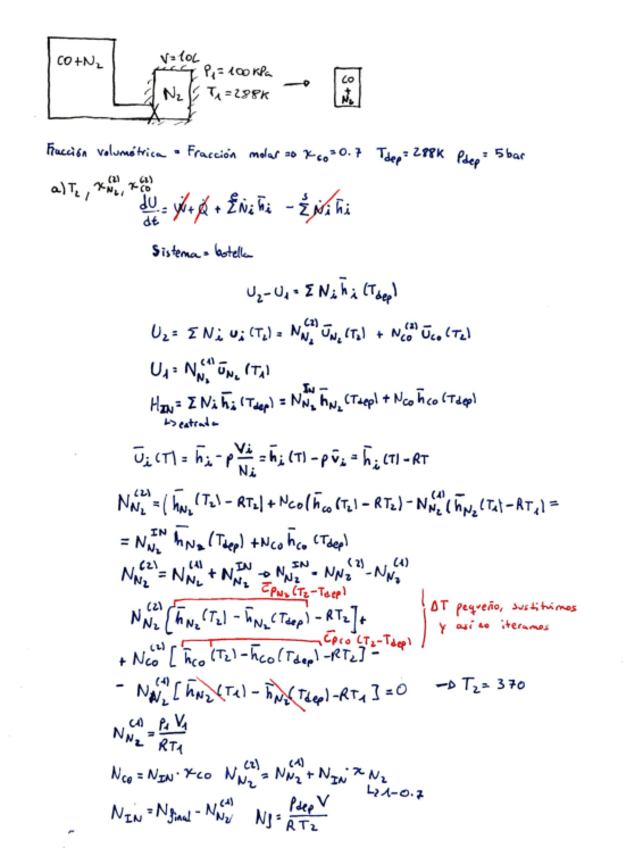 CO+N₂
V=10L
N₂
P₁=100KPa
T₁=288K
CO
+
N₂
Fracción volumétrica = Fracción molar => x_CO=0.7 T_dep=288K P_dep=5bar
a) T₂, x_N₂^(2), x_CO^(2)
dU/dt = Ẇ + Q̇ + Σ^e Ṅi h̄i - Σ^s Ṅi h̄i
Sistema = botella
U₂-U₁ = Σ Ni h̄i (T_dep)
U₂ = Σ Ni ui (T₂) = N_N₂^(2) ū_N₂ (T₂) + N_CO^(2) ū_CO (T₂)
U₁ = N_N₂^(1) ū_N₂ (T₁)
H_IN = Σ Ni h̄i (T_dep) = N_N₂^IN h̄_N₂ (T_dep) + N_CO h̄_CO (T_dep)
↳ entrada
ūi (T) = h̄i - p Vi/Ni = h̄i (T) - p v̄i = h̄i (T) - RT
N_N₂^(2) = (h̄_N₂ (T₂) - RT₂) + N_CO (h̄_CO (T₂) - RT₂) - N_N₂^(1) (h̄_N₂ (T₁) - RT₁) =
= N_N₂^IN h̄_N₂ (T_dep) + N_CO h̄_CO (T_dep)
N_N₂^(2) = N_N₂^(1) + N_N₂^IN → N_N₂^IN = N_N₂^(2) - N_N₂^(1)
c̄p_N₂ (T₂-T_dep)
N_N₂^(2) [h̄_N₂ (T₂) - h̄_N₂ (T_dep) - RT₂] +
ΔT pequeño, sustituimos
y así no iteramos
c̄p_CO (T₂-T_dep)
+ N_CO^(2) [h̄_CO (T₂) - h̄_CO (T_dep) - RT₂] -
- N_N₂^(1) [h̄_N₂ (T₁) - h̄_N₂ (T_dep) - RT₁] = 0 → T₂ = 370
N_N₂^(1) = P₁V₁/RT₁
N_CO = N_IN · x_CO N_N₂^(2) = N_N₂^(1) + N_IN · x_N₂
↳ 1-0.7
N_IN = N_final - N_N₂^(1) Nf = P_dep V/RT₂